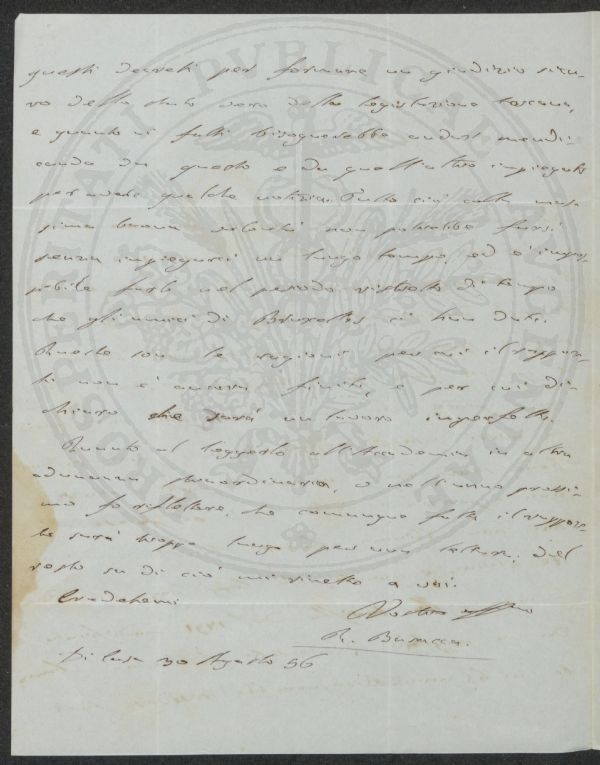 questi decreti per formare un giudizio sicu-
ro dello stato vero della legislazione toscana,
e quanto ai fatti bisognerebbe andar mendi-
cando da questo e da quell'altro impiegato
per avere qualche notizia. Tutto ciò colla mas-
sima buona volontà non potrebbe farsi
senza impiegarci un lungo tempo, ed è impos-
sibile farlo nel periodo ristretto di tempo
che gli amici di Bruxelles ci han dato.
Queste son le ragioni per cui il rappor-
to non è ancora finito, e per cui di-
chiaro che sarà un lavoro imperfetto.
Quanto al leggerlo all'Accademia in altra
adunanza straordinaria, o nell'anno prossi-
mo fo riflettere, che comunque fatto il rappor-
to sarà troppo lungo per una lettura. Del
resto su di ciò mi rimetto a voi.
Credetemi
Vostro affmo
R. Busacca.
Di Casa 30 Agosto 56
PROSPERITATI PUBLICAE AUGENDAE